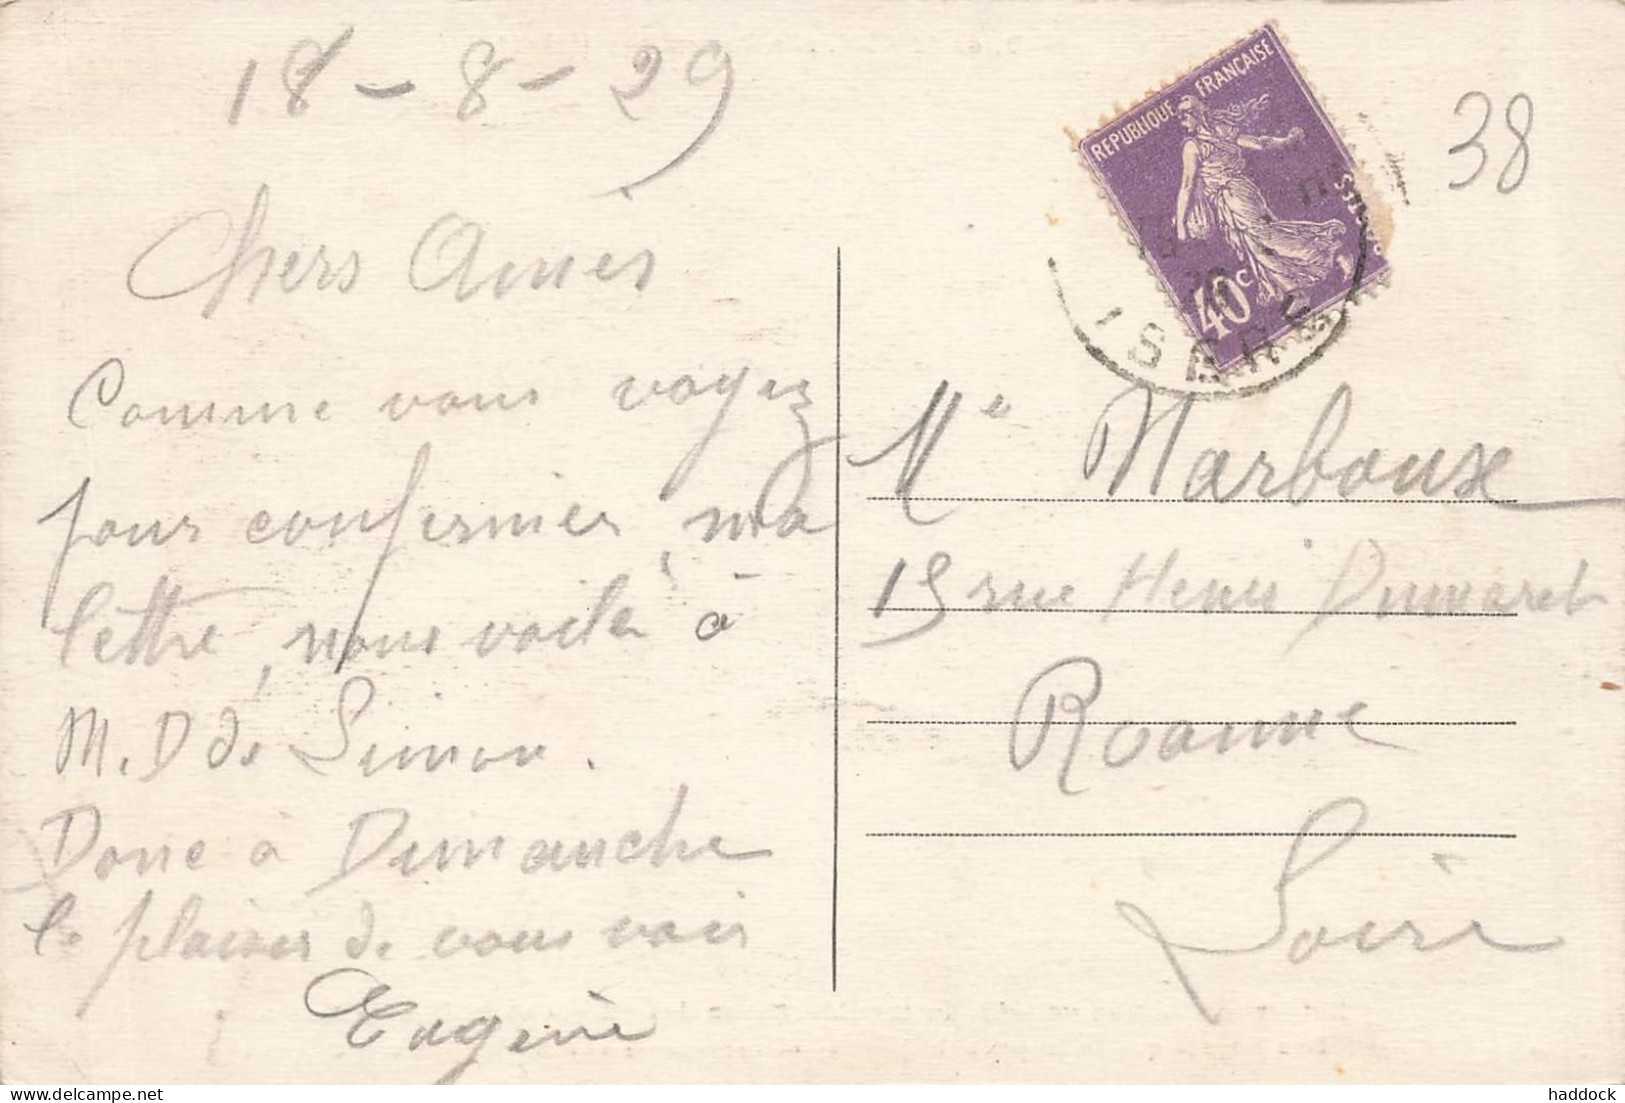 18 - 8 - 29
Chers Amies
Comme vous voyez
pour confermer ma
lettre, nous voila à
M. D de Simon.
Donc a Dimanche
le plaisir de vous voir
Eugènie
RÉPUBLIQUE FRANÇAISE
40c
ISERE
38
Me Marboux
15 rue Henri Dumarel
Roanne
Loire
haddock